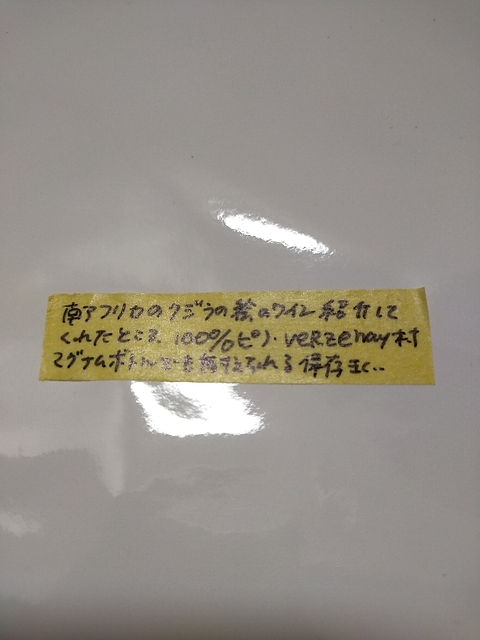 南アフリカのクジラの絵のワイン紹介して
くれたところ 100%ピノ・verzenay村
マグナムボトル 抑えられる 保存